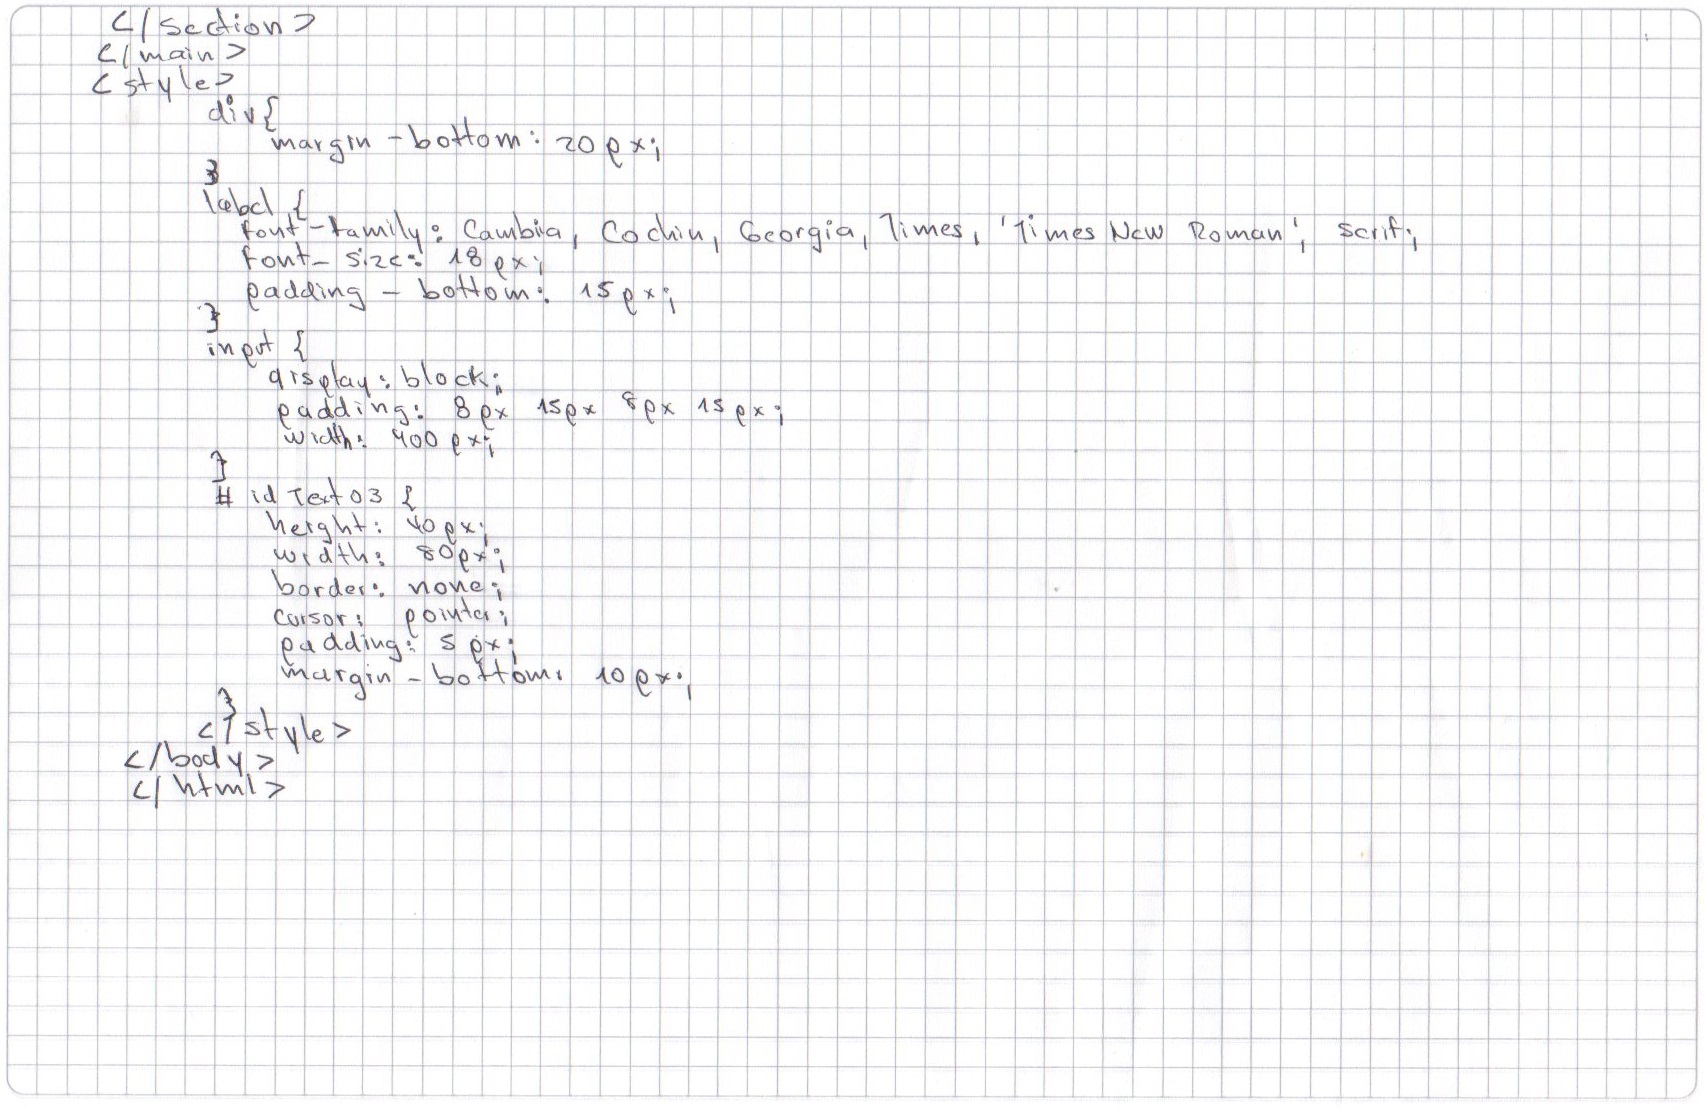 </section>
</main>
<style>
div{
margin-bottom: 20px;
}
label {
font-family: Cambria, Cochin, Georgia, Times, 'Times New Roman', serif;
font-size: 18px;
padding-bottom: 15px;
}
input {
display: block;
padding: 8px 15px 8px 15px;
width: 400px;
}
#idText03 {
height: 40px;
width: 80px;
border: none;
cursor: pointer;
padding: 5px;
margin-bottom: 10px;
}
</style>
</body>
</html>